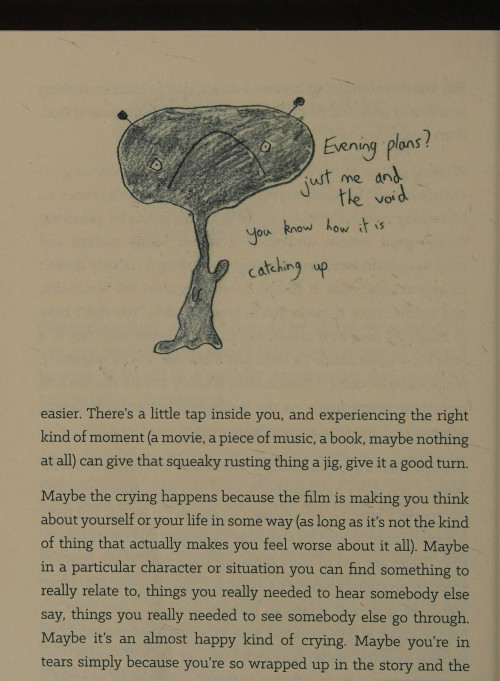 Evening plans?
just me and
the void
you know how it is
catching up
easier. There's a little tap inside you, and experiencing the right
kind of moment (a movie, a piece of music, a book, maybe nothing
at all) can give that squeaky rusting thing a jig, give it a good turn.
Maybe the crying happens because the film is making you think
about yourself or your life in some way (as long as it's not the kind
of thing that actually makes you feel worse about it all). Maybe
in a particular character or situation you can find something to
really relate to, things you really needed to hear somebody else
say, things you really needed to see somebody else go through.
Maybe it's an almost happy kind of crying. Maybe you're in
tears simply because you're so wrapped up in the story and the